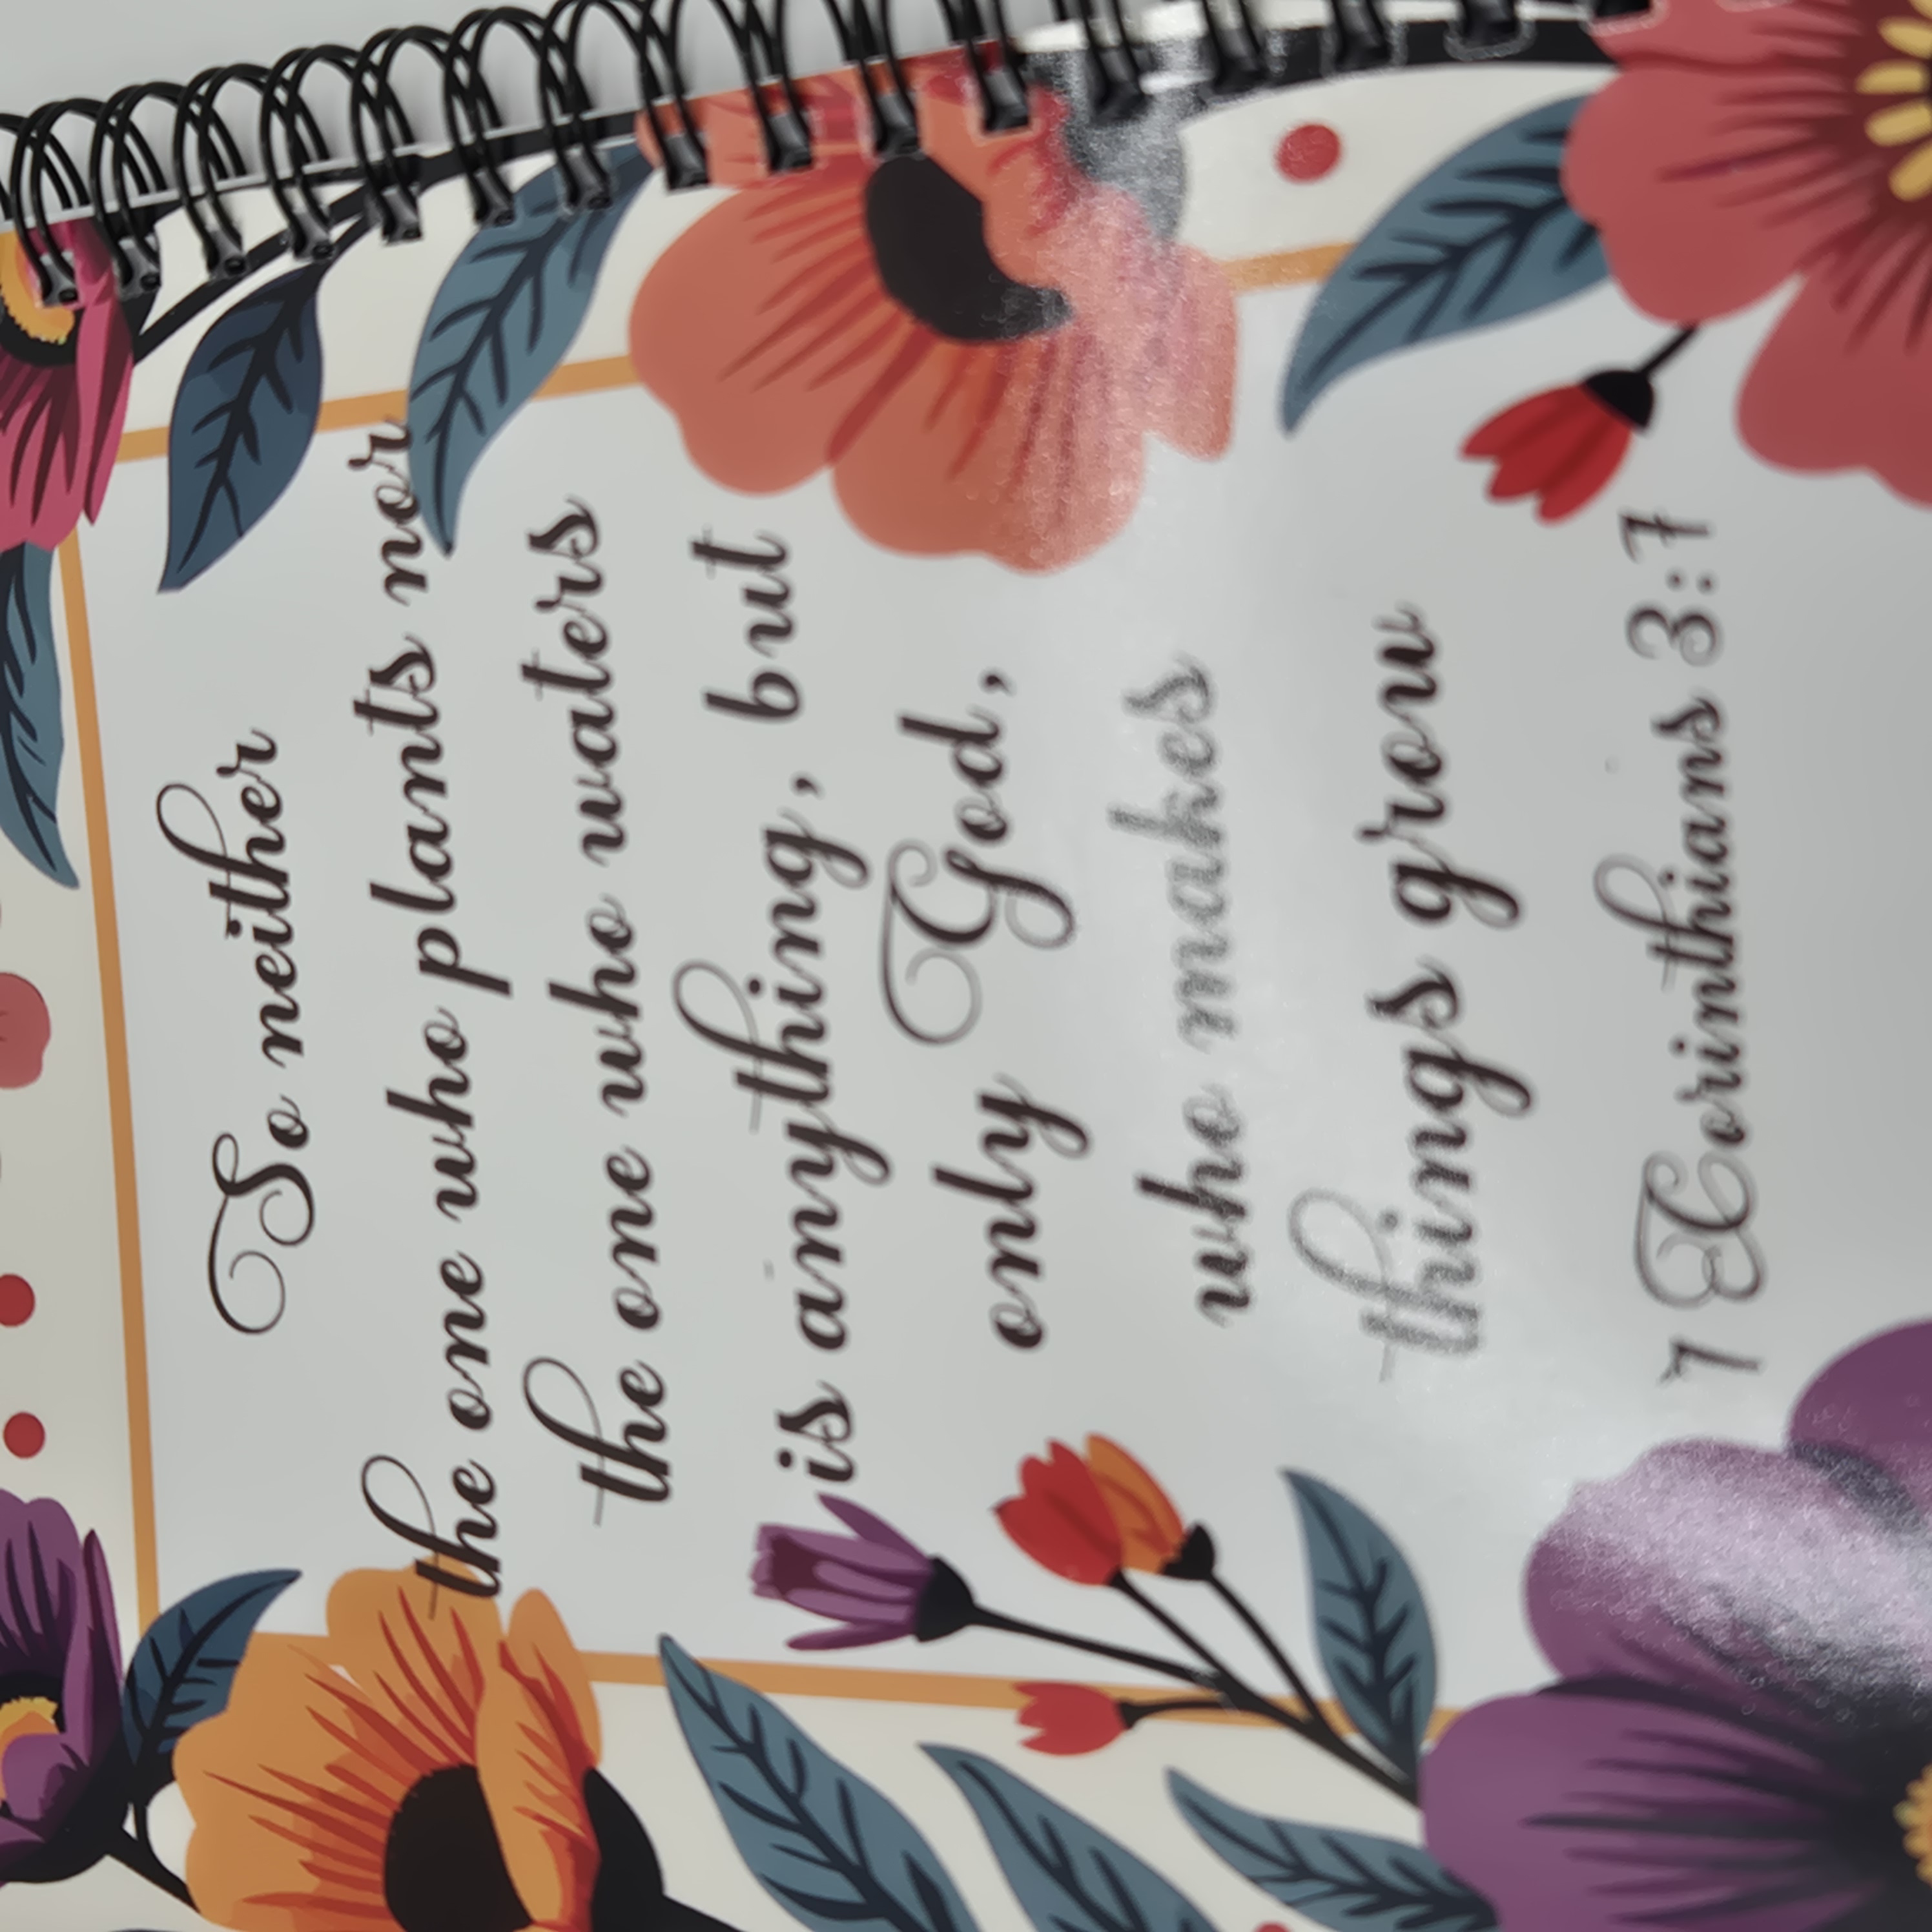 So neither
the one who plants nor
the one who waters
is anything, but
only God,
who makes
things grow
1 Corinthians 3:7